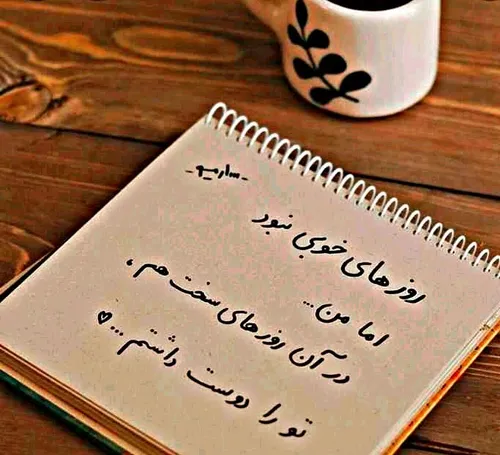 روزهای خوبی نبود
اما من...
در آن روزهای سخت هم،
تو را دوست داشتم...